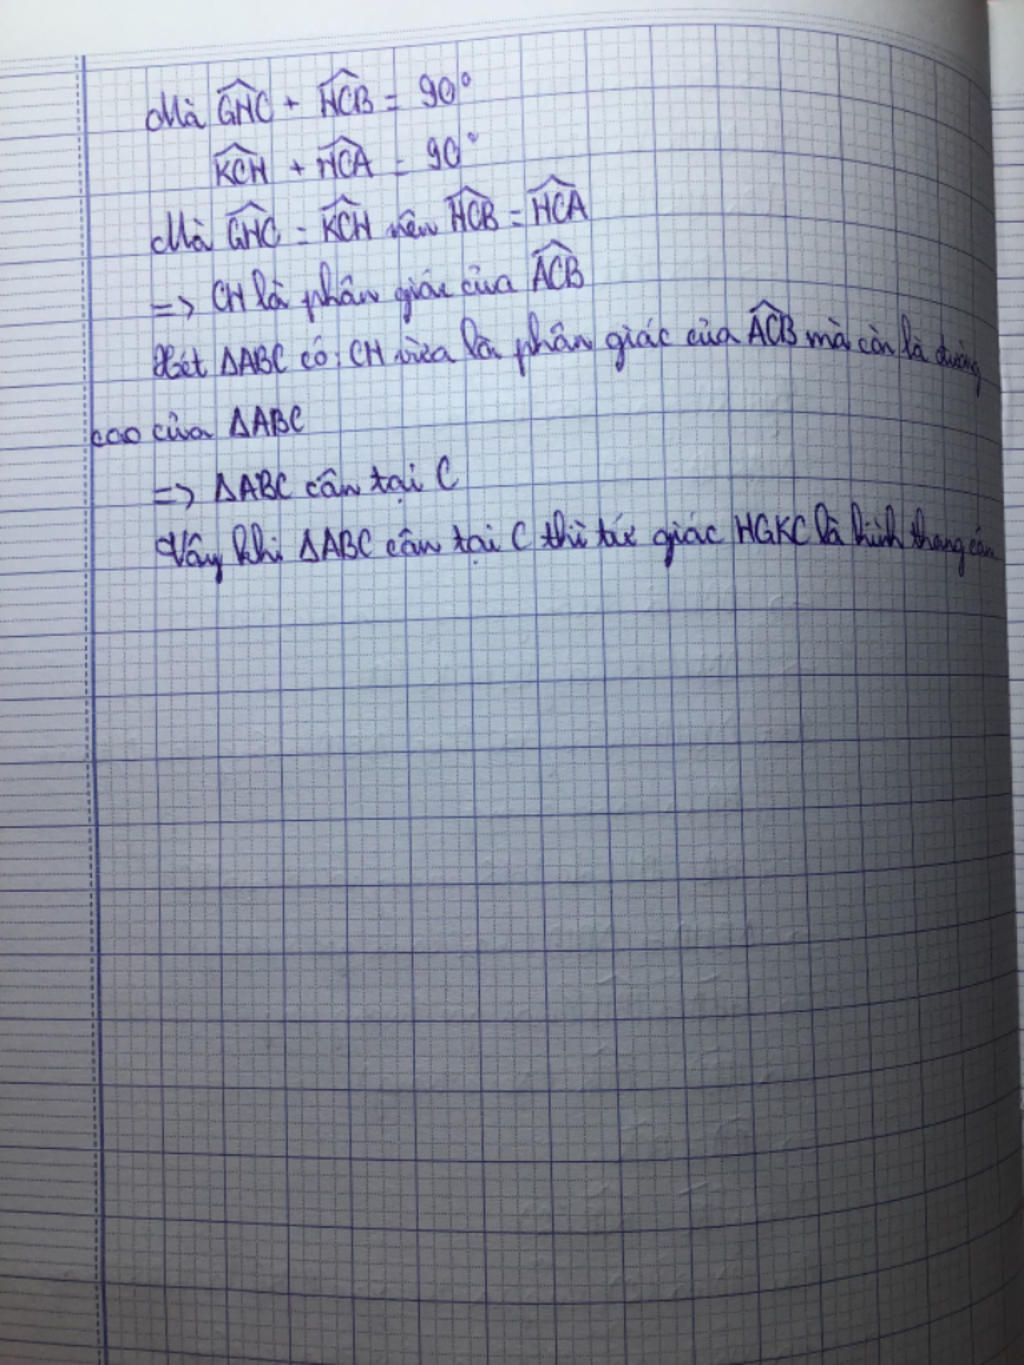 Mà \widehat{GHC} + \widehat{HCB} = 90°
\widehat{KCH} + \widehat{HCA} = 90°
Mà \widehat{GHC} = \widehat{KCH} nên \widehat{HCB} = \widehat{HCA}
=> CH là phân giác của \widehat{ACB}
Xét ΔABC có: CH vừa là phân giác của \widehat{ACB} mà còn là đường
cao của ΔABC
=> ΔABC cân tại C
Vậy khi ΔABC cân tại C thì tứ giác HGKC là hình thang cân